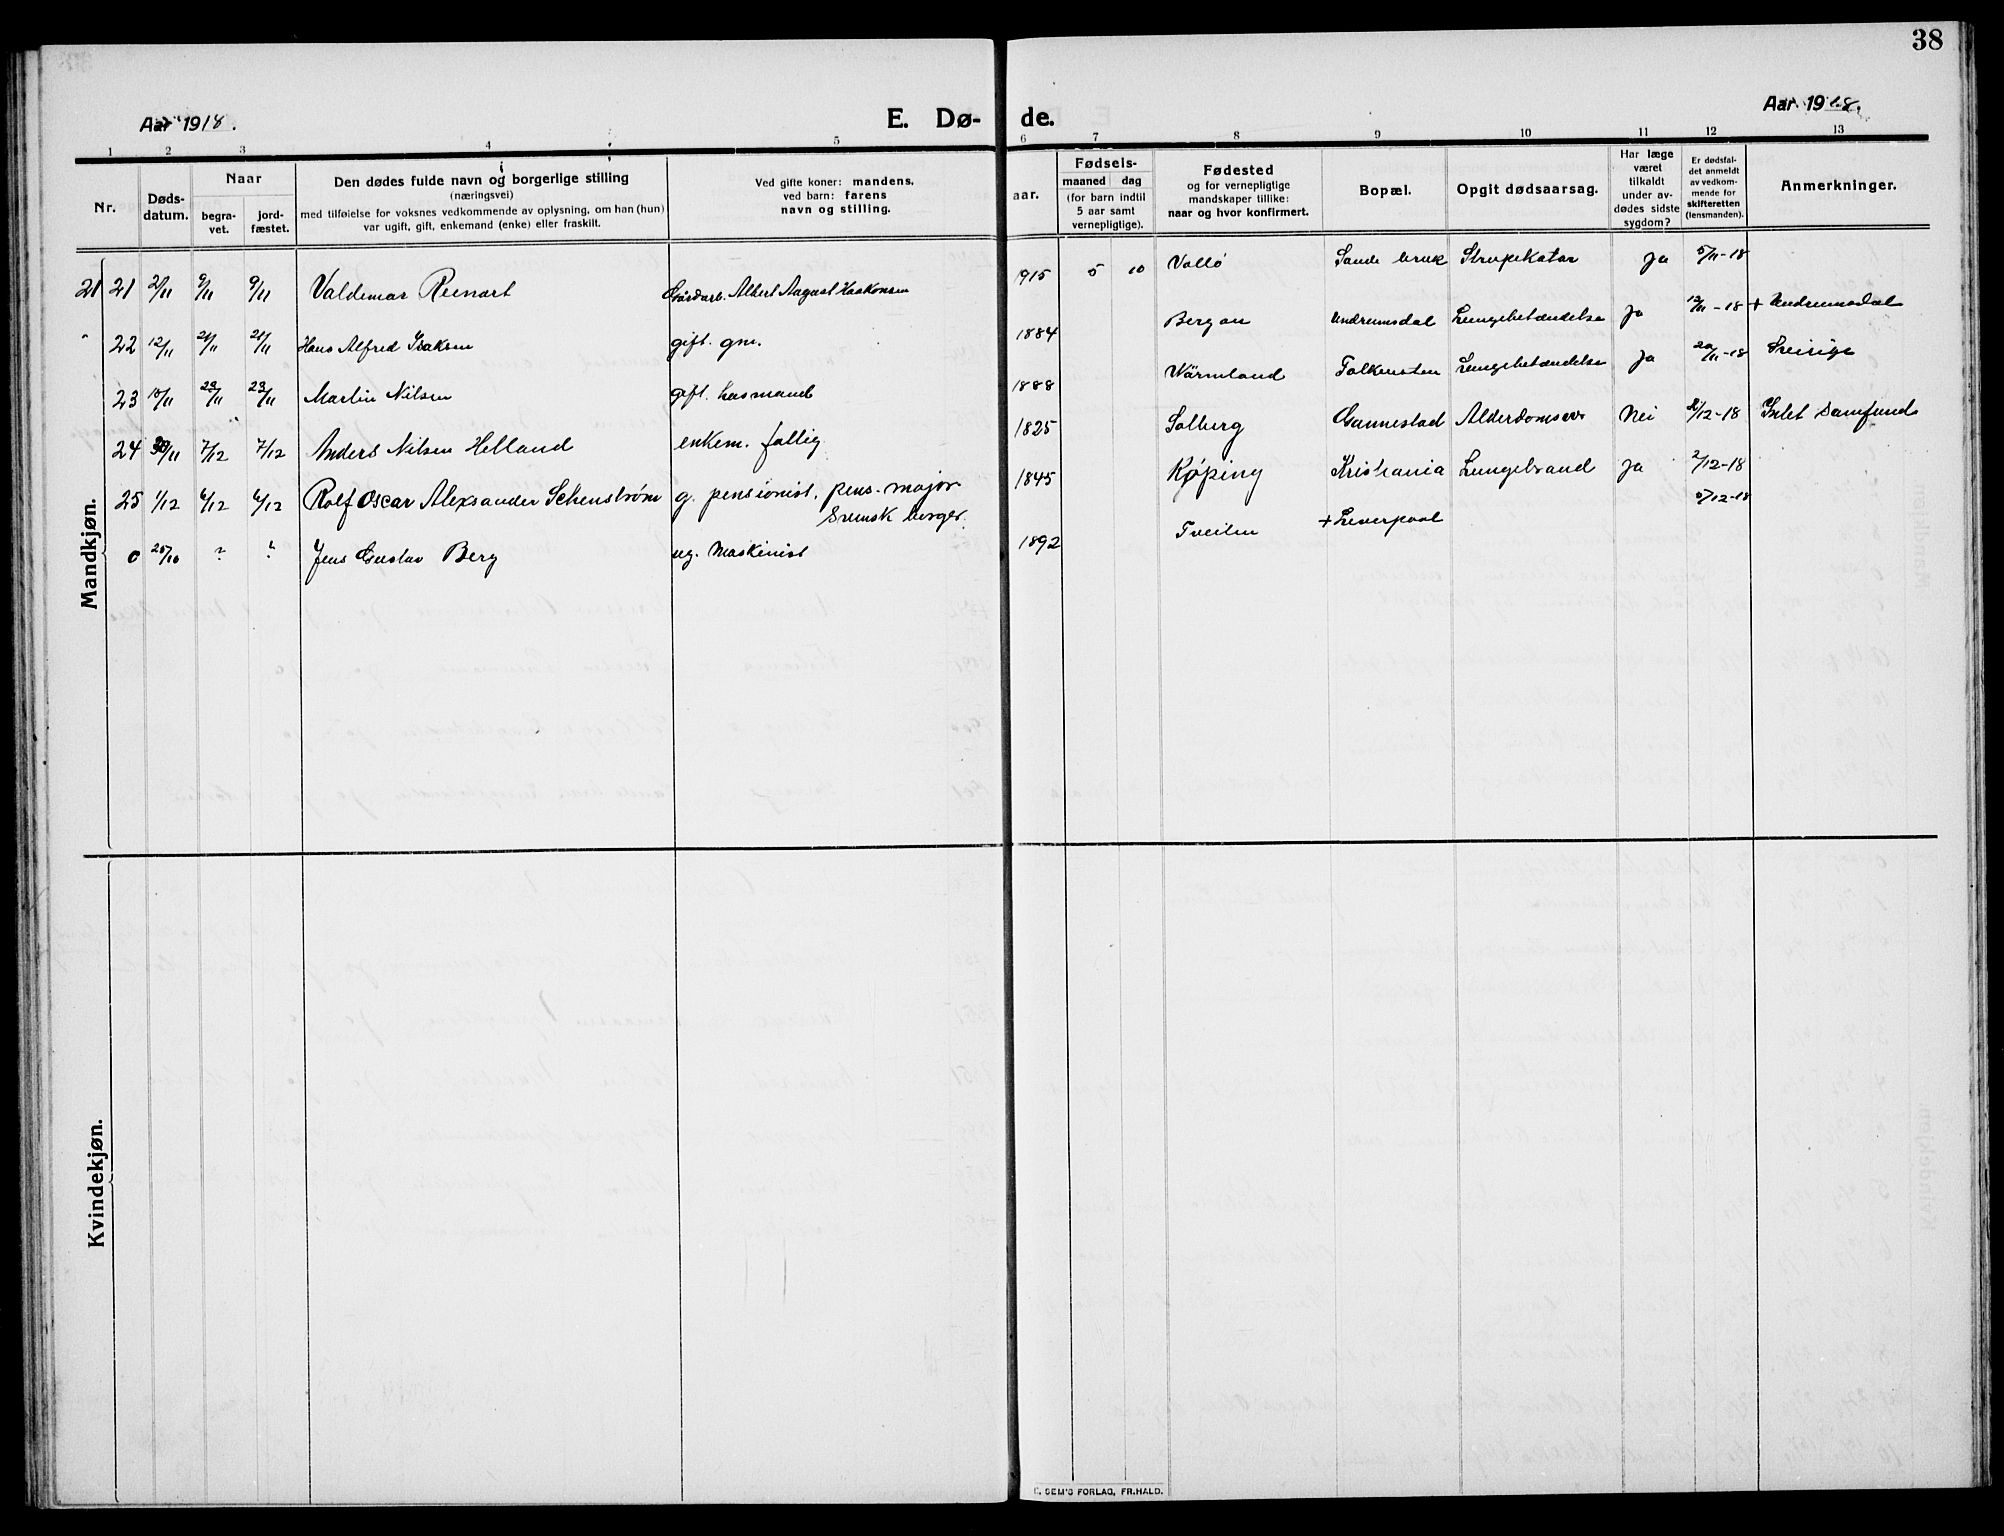 38
Aar 1918.
E. Dø-
de.
Aar 1918.
1 2 3 4 5 6 7 8 9 10 11 12 13
Nr.
Døds-
datum.
Naar
begra-
vet.
jord-
fæstet.
Den dødes fulde navn og borgerlige stilling
(næringsvei)
med tilføielse for voksnes vedkommende av oplysning, om han (hun)
var ugift, gift, enkemand (enke) eller fraskilt.
Ved gifte koner: mandens,
ved barn: farens
navn og stilling.
aar.
Fødsels-
maaned dag
(for barn indtil
5 aar samt
vernepligtige).
Fødested
og for vernepligtige
mandskaper tillike:
naar og hvor konfirmert.
Bopæl.
Opgit dødsaarsag.
Har læge
været
tilkaldt
under av-
dødes sidste
sygdom?
Er dødsfal-
det anmeldt
av vedkom-
mende for
skifteretten
(lensmanden).
Anmerkninger.
Mandkjøn.
21 21 2/11 9/11 9/11 Valdemar Reinart Gårdarb. Albert August Haakonsen 1915 5 10 Vallö Sande bruk Strupekatar Ja 5/11-18
" 22 12/11 21/11 21/11 Hans Alfred Isaksen gift. gm. 1884 Bergan Undrumsdal Lungebetændelse Ja 12/11-18 + Undrumsdal
23 18/11 23/11 23/11 Martin Nilsen gift. husmand 1888 Wärmland Falkensten Lungebetændelse Ja 20/11-18 Sverige
24 30/11 7/12 7/12 Anders Nilsen Helland enkem. fattig 1825 Solberg Gannestad Alderdomssv. Nei 2/12-18 Intet samfund
25 1/12 6/12 6/12 Rolf Oscar Alexsander Schenstrøm g. pensionist. pens. major 1845 Køping Kristiania Lungebrand Ja 2/12-18
Svensk borger.
5/12-18
0 25/10 ? " Jens Gustav Berg ug. Maskinist 1892 Tveiten + Liverpool
Kvindekjøn.
SEM'S FORLAG, FR.HALD.